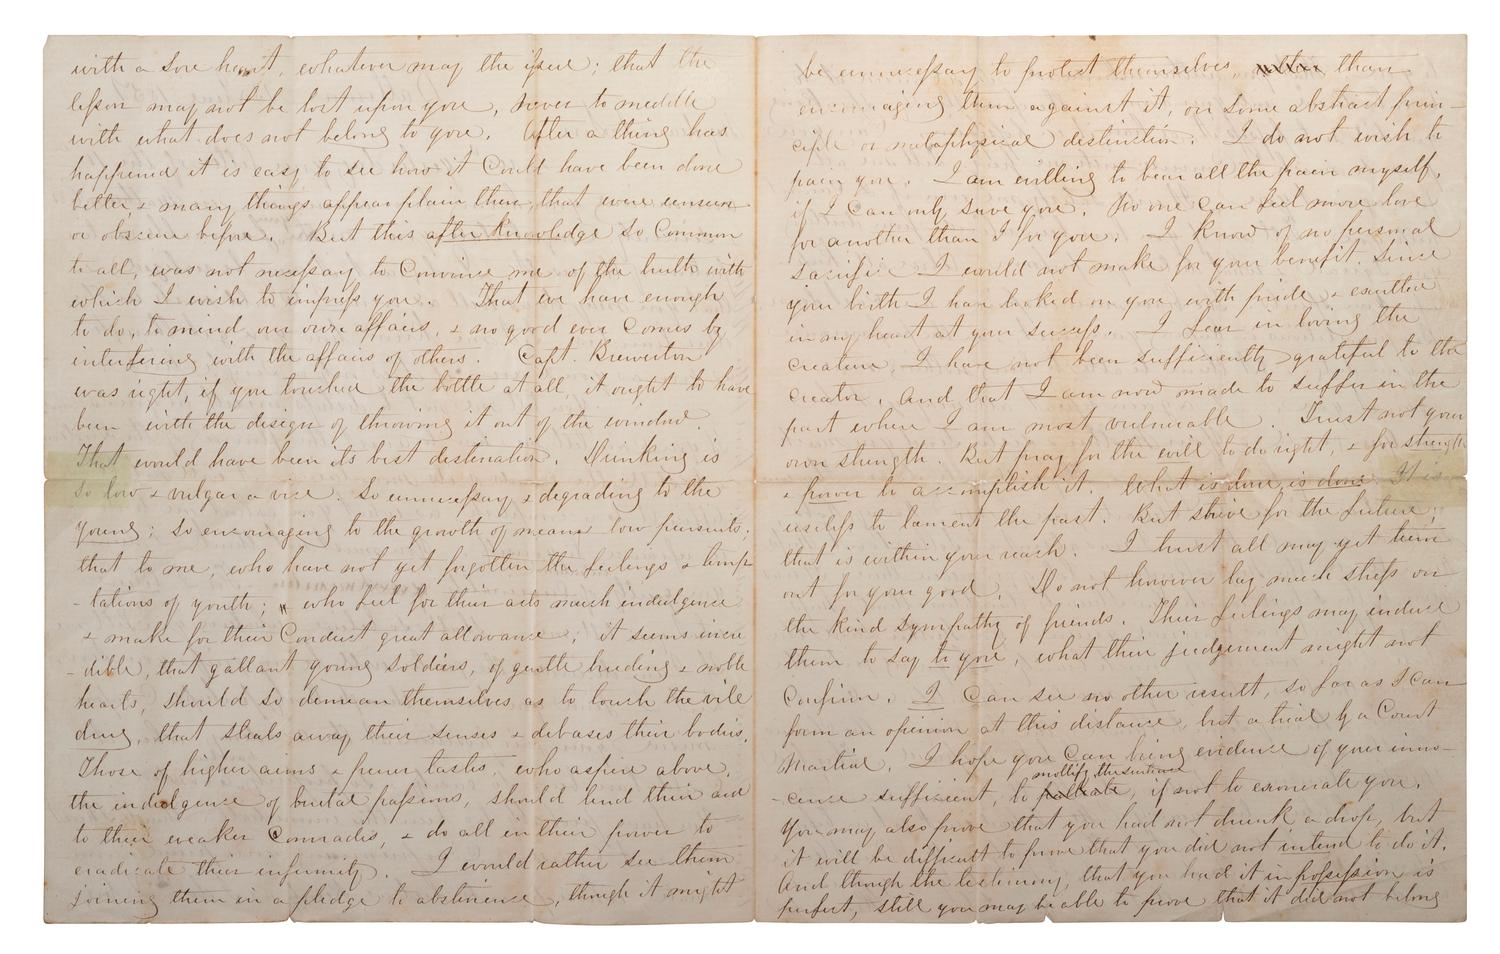 with a sore heart, whatever may the issue; that the
lesson may not be lost upon you, never to meddle
with what does not belong to you. After a thing has
happened it is easy to see how it Could have been done
better, & many things appear plain then, that were unseen
or obscure before. But this after knowledge so Common
to all, was not necessary to Convince me of the truth with
which I wish to impress you. That we have enough
to do, to mind our own affairs, & no good ever Comes by
interfering with the affairs of others. Capt. Brewerton
was right, if you touched the bottle at all it ought to have
been with the design of throwing it out of the window.
That would have been its best destination. Drinking is
so low & vulgar a vice. So unnecessary & degrading to the
young; so encouraging to the growth of mean low pursuits;
that to me, who have not yet forgotten the feelings & temp
-tations of youth; who feel for their acts much indulgence
& make for their Conduct great allowance; it seems incre
-dible, that gallant young soldiers, of gentle breeding & noble
hearts, should so demean themselves as to touch the vile
drug, that steals away their senses & debases their bodies.
Those of higher aims & purer tastes, who aspire above,
the indulgence of brutal passions, should lend their aid
to their weaker Comrades, & do all in their power to
eradicate their infirmity. I would rather see them
joining them in a pledge to abstinence, though it might
be unnecessary to protect themselves, than
encouraging them against it, on some abstract prin-
ciple or metaphysical distinction. I do not wish to
pain you. I am willing to bear all the pain myself,
if I Can only save you. No one Can feel more love
for another than I for you. I know of no personal
sacrifice I would not make for your benefit. Since
your birth I have looked on you with pride & exulted
in my heart at your success. I fear in loving the
creature, I have not been sufficiently grateful to the
creator, And that I am now made to suffer in the
part where I am most vulnerable. Trust not your
own strength. But pray for the will to do right, & for strength
& power to accomplish it. What is done is done. It is
useless to lament the past. But strive for the future;
that is within your reach. I trust all may yet turn
out for your good. Do not however lay much stress on
the kind sympathy of friends. Their feelings may induce
them to say to you, what their judgement might not
Confirm. I Can see no other result, so far as I Can
form an opinion at this distance, but a trial by a Court
Martial. I hope you Can bring evidence of your inno-
mollify the sentence
-cence sufficient, to palliate, if not to exonerate you.
You may also prove that you had not drunk a drop, but
it will be difficult to prove that you did not intend to do it.
And though the testimony, that you had it in possession is
perfect, still you may be able to prove that it did not belong